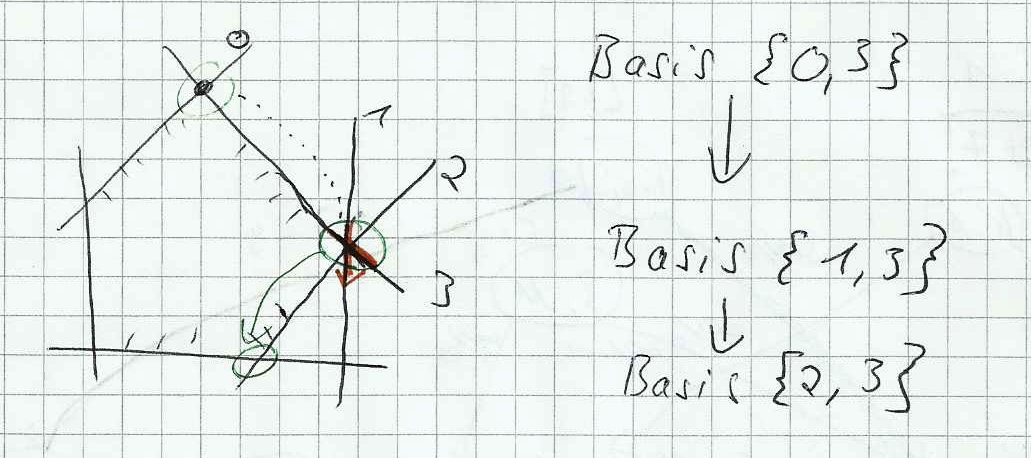 0
1
2
3
Basis {0,3}
Basis {1,3}
Basis {2,3}